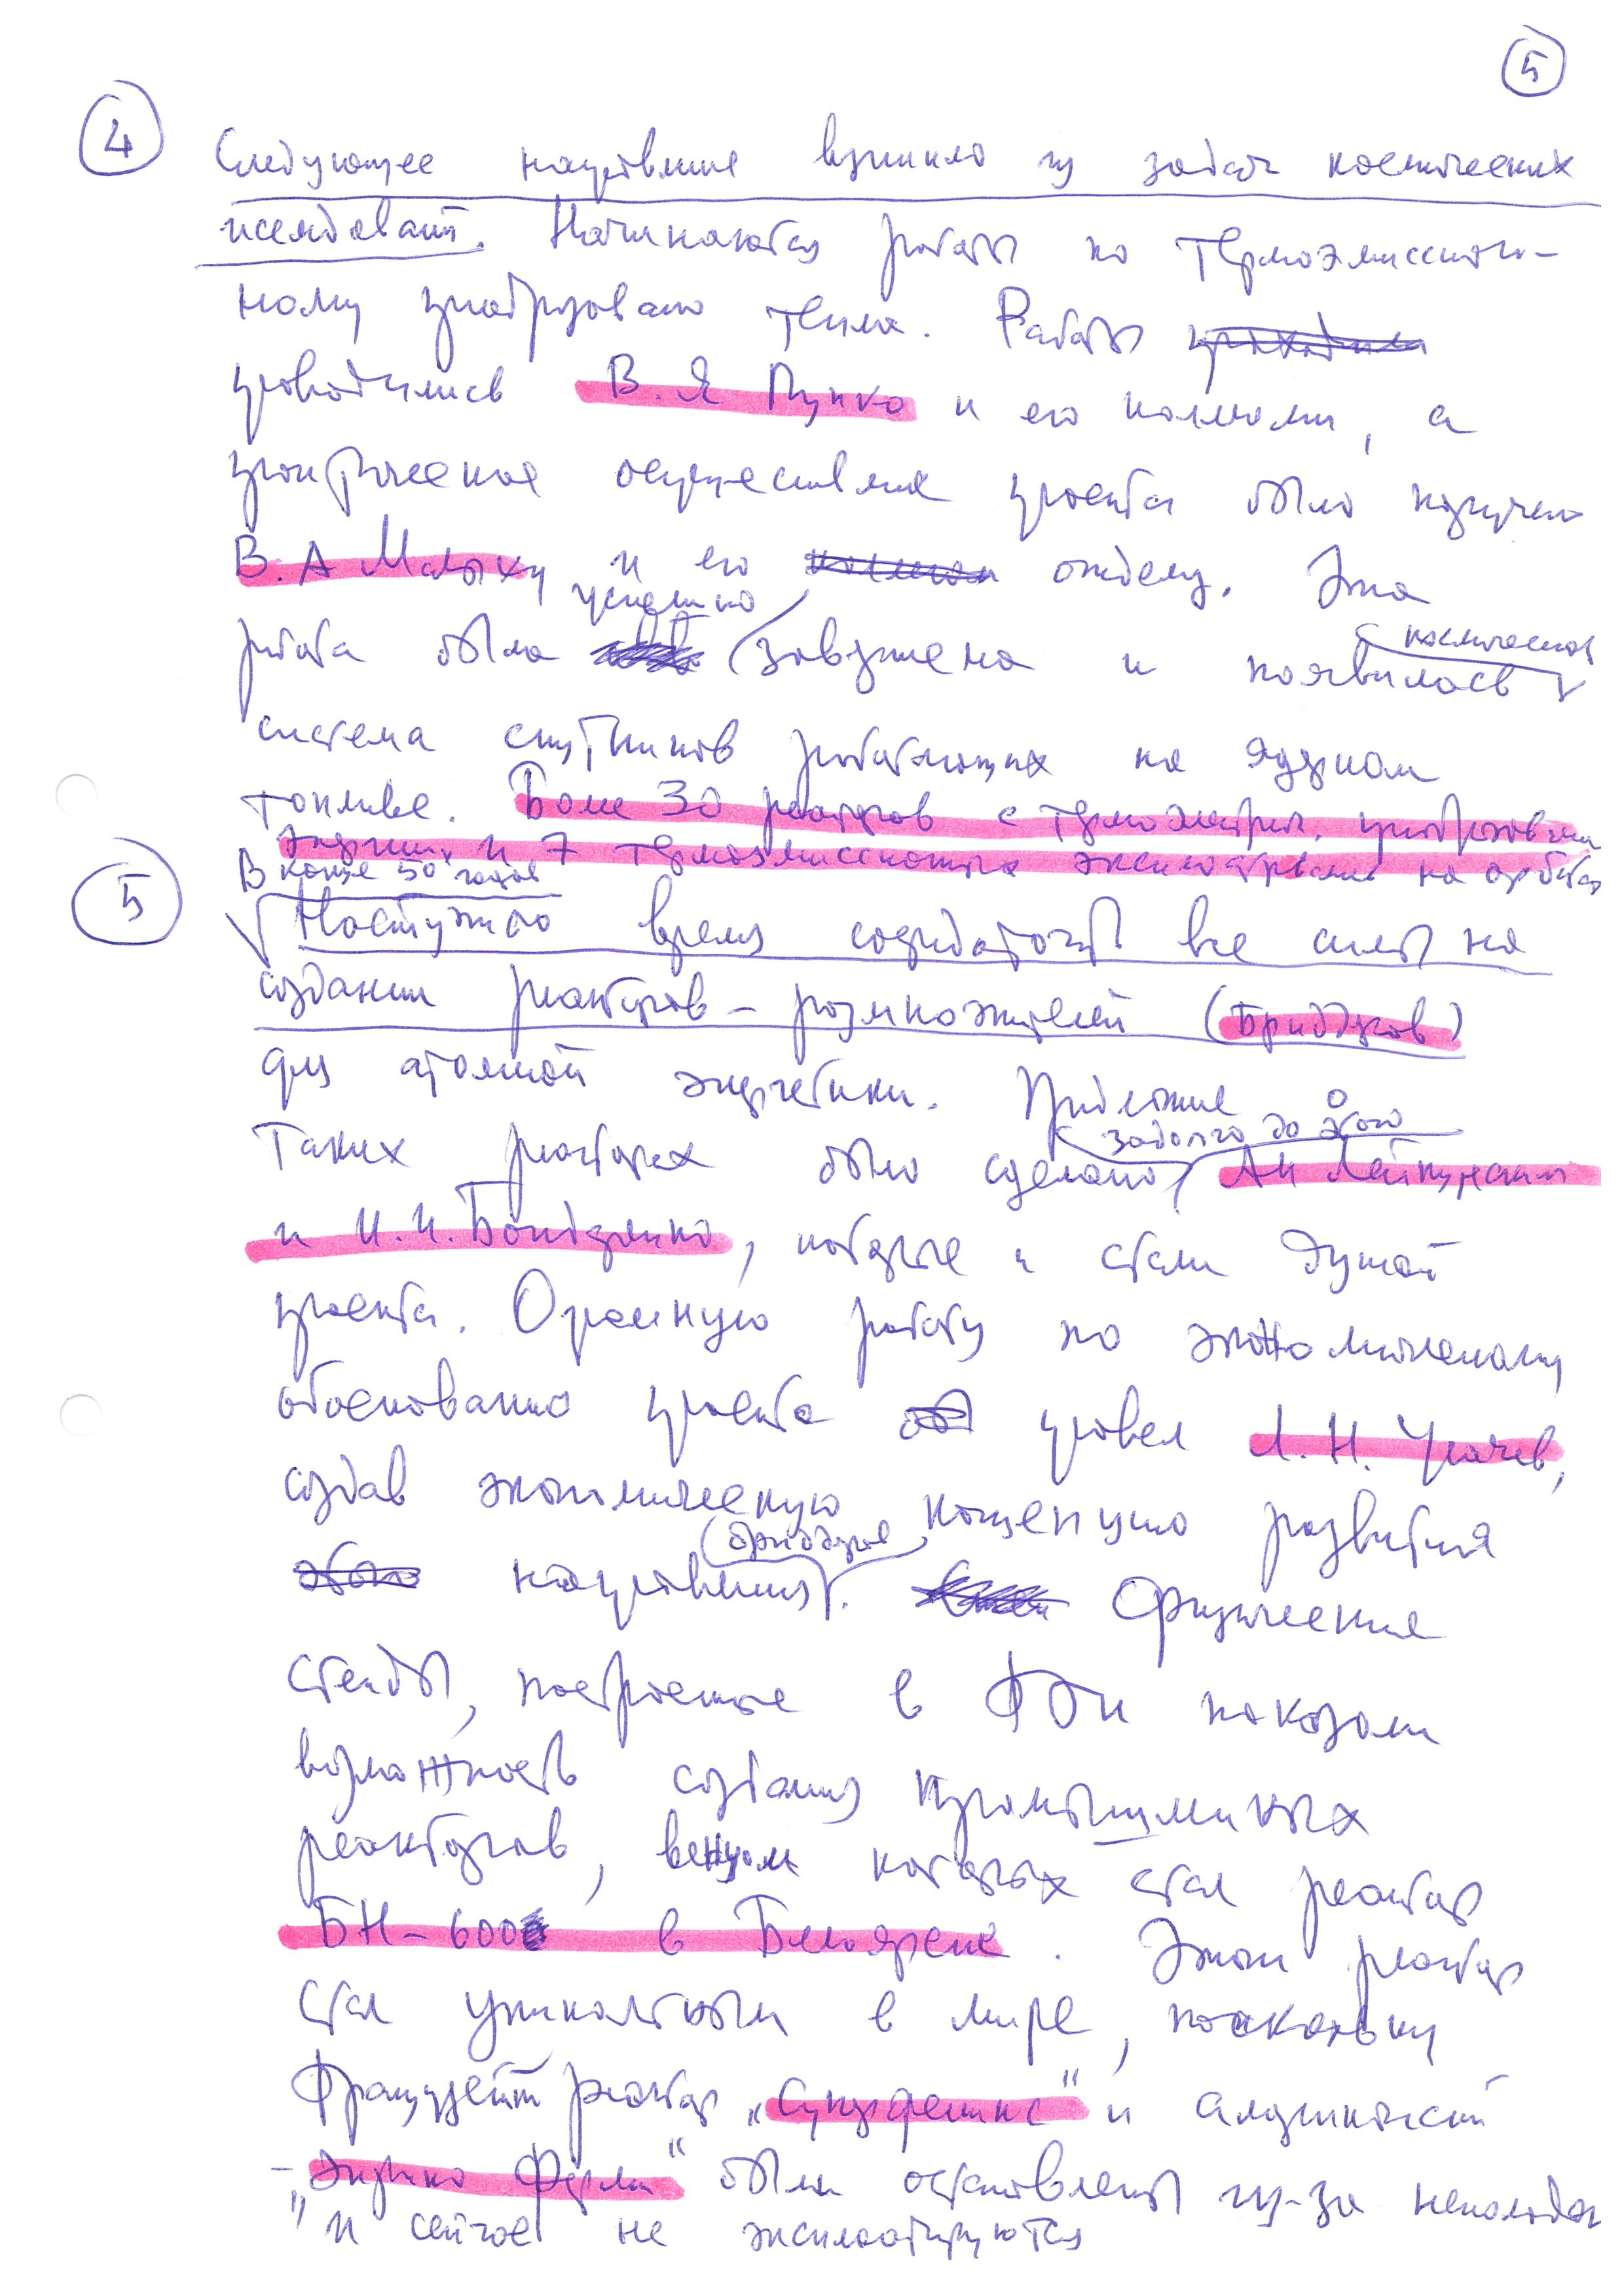 5
4 Следующее направление возникло из задач космических
исследований. Начинаются работы по термоэмиссион-
ному преобразованию тепла. Работы проходили
проводились В.Я Пупко и его коллегами, а
практическое осуществление проекта было поручено
В.А Малыху и его коллегам отделу. Эта
успешно
работа была завершена и появилась космическая
система спутников работающих на ядерном
топливе. Более 30 реакторов с термоэлектрич. преобразован
энергии и 7 термоэмиссионных эксплуатировались на орбитах
В конце 50 годов
5 Наступило время сосредоточить все силы на
создании реакторов-размножителей (бридеров)
для атомной энергетики. Предложение
задолго до этого о
таких реакторах было сделано АИ Лейпунским
и И.И.Бондаренко, которые и стали душой
проекта. Огромную работу по экономическому
обоснованию проекта провел Л.Н. Усачев,
создав экономическую концепцию развития
бридерное
этого направления. Физические
стенды, построенные в ФЭИ показали
возможность создания промышленных
реакторов, венцом которых стал реактор
БН-600 в Белоярске. Этот реактор
стал уникальным в мире, поскольку
Французский реактор „Суперфеникс“ и американский
- „Энрико Ферми“ были остановлены из-за неполадок
и сейчас не эксплоатируются